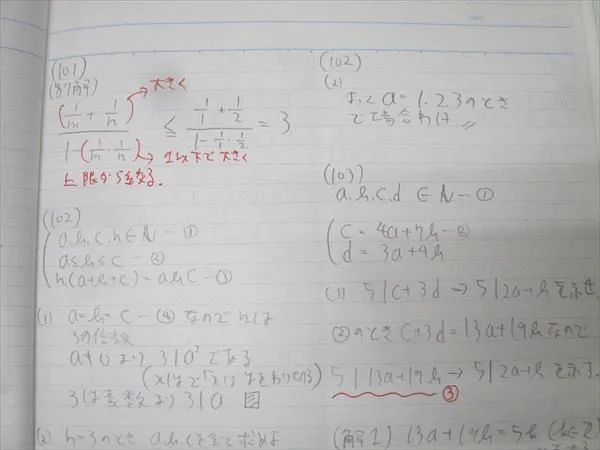 (101)
(別解)
(1/m + 1/n) / (1-(1/m・1/n)) ≦ (1/1 + 1/2) / (1-1/1・1/2) = 3
大きく
1以下で大きく
上限から
(102)
a.b.c.n∈N-①
a≦b≦c-②
n(a+b+c)=abc-③
(1) a=b=c-④ なので nは
3の倍数
a≠0より 3|a²である
3は素数より 3|a
(2) n=3のとき a.b.cを全て求めよ
(102)
(2)
よって a=1.2.3のとき
(103)
a.b.c.d∈N-①
c=4a+7b-②
d=3a+4b
(1) 5|c+3d→5|2a+bを示せ
②のときc+3d=13a+19bなので
5|13a+19b→5|2a+bを示す
③
(解1) 13a+19b=5k(k∈Z)